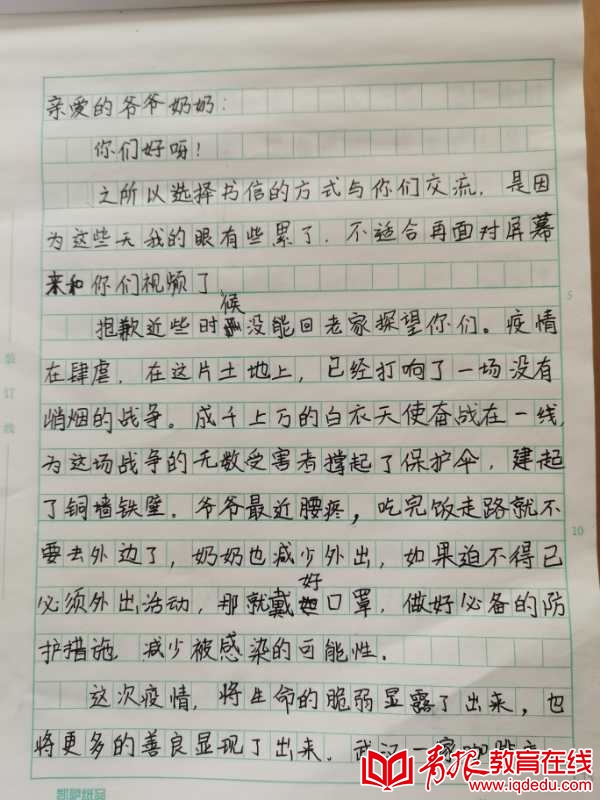 亲爱的爷爷奶奶:
你们好呀!
之所以选择书信的方式与你们交流,是因
为这些天我的眼有些累了,不适合再面对屏幕
来和你们视频了
抱歉近些时候没能回老家探望你们。疫情
在肆虐,在这片土地上,已经打响了一场没有
硝烟的战争。成千上万的白衣天使奋战在一线,
为这场战争的无数受害者撑起了保护伞,建起
了铜墙铁壁.爷爷最近腰疼,吃完饭走路就不
要去外边了,奶奶也减少外出,如果迫不得已
必须外出活动,那就戴好口罩,做好必备的防
护措施 减少被感染的可能性.
这次疫情,将生命的脆弱显露了出来,也
将更多的善良显现了出来.武汉一家
装订线
5
10
青报教育在线
www.iqdedu.com